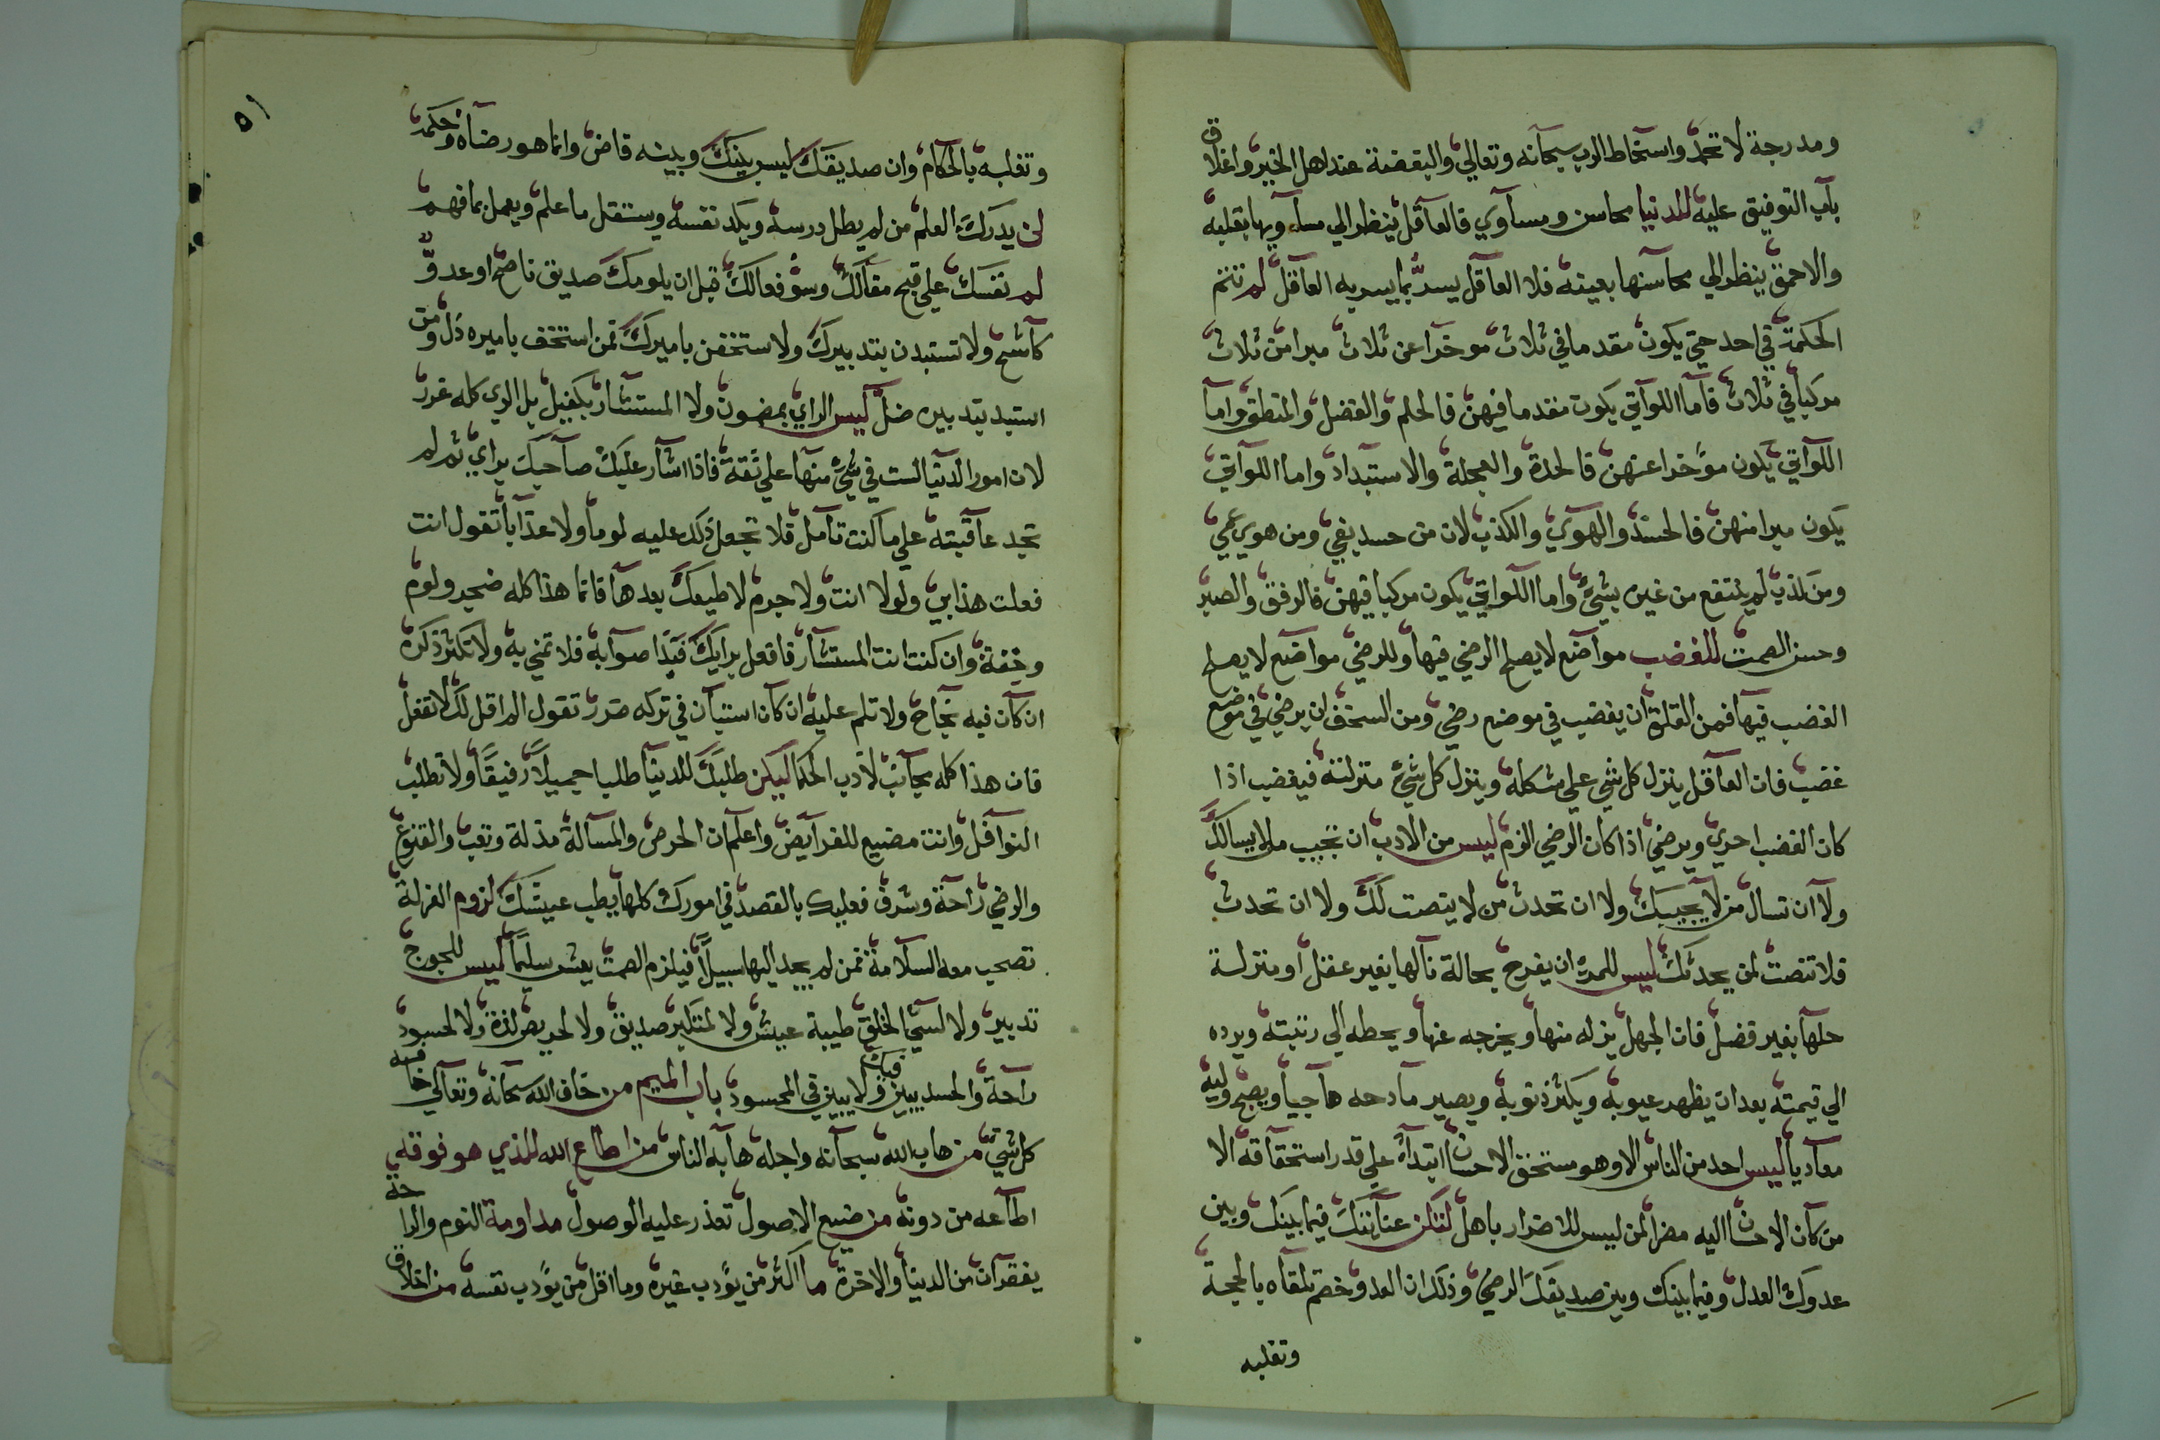 ومدرجة لا تحمد واسخاط الرب سبحانه وتعالي والبغضة عند اهل الخير واغلاق
باب التوفيق عليه للدنيا محاسن ومساوي فالعاقل ينظر الي مساويها بقلبه
والاحمق ينظر الي محاسنها بعينه فلا العاقل يسر بما يسر به العاقل لم تتم
الحكمة في احد حتي يكون مقدما في ثلاث موخرا عن ثلاث مبرا من ثلاث
مركبا في ثلاث فاما اللواتي يكون مقدما فيهن فالحلم والفضل والمنطق واما
اللواتي يكون موخرا عنهن فالحدة والعجلة والاستبداد واما اللواتي
يكون مبرا منهن فالحسد والهوي والكذب لان من حسد بغي ومن هوي عمي
ومن كذب لم ينتفع من غيره بشيء واما اللواتي يكون مركبا فيهن فالرفق والصبر
وحسن الصمت للغضب مواضع لا يصلح الرضي فيها وللرضي مواضع لا يصلح
الغضب فيها فمن القلق ان يغضب في موضع رضي ومن السخف ان يرضي في موضع
غضب فان العاقل ينزل كل شي علي مشكله وينزل كل شيء منزلته فيغضب اذا
كان الغضب احري ويرضي اذا كان الرضي الزم ليس من الادب ان تجيب من لا يسالك
ولا ان تسال من لا يجيبك ولا ان تحدث من لا ينصت لك ولا ان تحدث
فلا تنصت لمن يحدثك ليس للمرء ان يفرح بحالة نالها بغير عقل او منزلة
حلها بغير فضل فان الجهل يزله منها ويخرجه عنها ويحطه الي رتبته ويرده
الي قيمته بعد ان يظهر عيوبه ويكثر ذنوبه ويصير مادحه هاجيا ويصبح وليه
معاديا ليس احد من الناس الا وهو مستحق الاحسان ابتداه علي قدر استحقاقه الا
من كان الاحسان اليه مضرا لمن ليس للاضرار باهل لتكن عنايتك فيما بينك وبين
عدوك العدل وفيما بينك وبين صديقك الرضي وذلك ان العدو خصم تلقاه بالحجة
وتغلبه
٥١
وتغلبه بالحكام وان صديقك ليس بينك وبينه قاض وانما هو رضاه وحكمه
لن يدرك العلم من لم يطل درسه ويكد نفسه ويستقل ما علم ويعمل بما فهم
لم نفسك علي قبح مقالك وسوء فعالك قبل ان يلومك صديق ناصح او عدو
كاشح ولا تستبدن بتدبيرك ولا تستخفن باميرك فمن استخف باميره ذل ومن
استبد بتدبيره ضل ليس الراي بمضمون ولا المستشار بكفيل بل الراي كله غرر
لان امور الدنيا لست في شيء منها علي ثقة فاذا اشار عليك صاحبك براي ثم لم
تجد عاقبته علي ما كنت تامل فلا تجعل ذلك عليه لوما ولا عذابا تقول انت
فعلت هذا بي ولولا انت ولا جرم لا طيعك بعدها فانما هذا كله ضجر ولوم
وخفة وان كنت انت المستشار فافعل برايك فبدا صوابه فلا تمني به ولا تكثر ذكره
ان كان فيه نجاح ولا تلم عليه ان كان استبان في تركه ضرر تقول الم اقل لك لا تفعل
فان هذا كله مجانب لادب الحكما ليكن طلبك للدنيا طلبا جميلا رفيقا ولا تطلب
النوافل وانت مضيع للفرايض واعلم ان الحرص والمسالة مذلة وتعب والقنوع
والرضي راحة وشرف فعليك بالقصد في امورك كلها يطب عيشك لزوم العزلة
تصحب معه السلامة فمن لم يجد اليها سبيلا فيلزم الصمت يعش سليما ليس للجوج
تدبير ولا لسي الخلق طيبة عيش ولا لمتكبر صديق ولا لحريص لذة ولا لحسود
راحة والحسد يبين فيك ولا يبين في المحسود باب الميم من خاف الله سبحانه وتعالي خافه
كل شي من هاب الله سبحانه واجله هابه الناس من اطاع الله للذي هو فوقه
اطاعه من دونه من ضيع الاصول تعذر عليه الوصول مداومة النوم والراحة
يفقران من الدنيا والاخرة ما اكثر من يودب غيره وما اقل من يودب نفسه من اخلاق